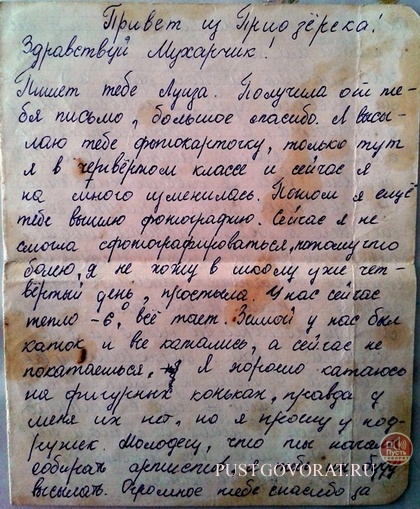 Привет из Приозёрска!
Здравствуй Мухарчик!
Пишет тебе Луиза. Получила от те-
бя письмо, большое спасибо. Я высы-
лаю тебе фотокарточку, только тут
я в четвёртом классе и сейчас я
на много изменилась. Потом я ещё
тебе вышлю фотографию. Сейчас я не
смогла сфотографироваться, потому что
болею, я не хожу в школу уже чет-
вёртый день, простыла. У нас сейчас
тепло -6°, всё тает. Зимой у нас был
каток и все катались, а сейчас не
покатаешься, Я хорошо катаюсь
на фигурных коньках, правда у
меня их нет, но я прошу у под-
ружек. Молодец, что ты
собирать артистов
высылать. Огромное тебе спасибо за
ПУСТЬ
PUSTGOVORAT.RU